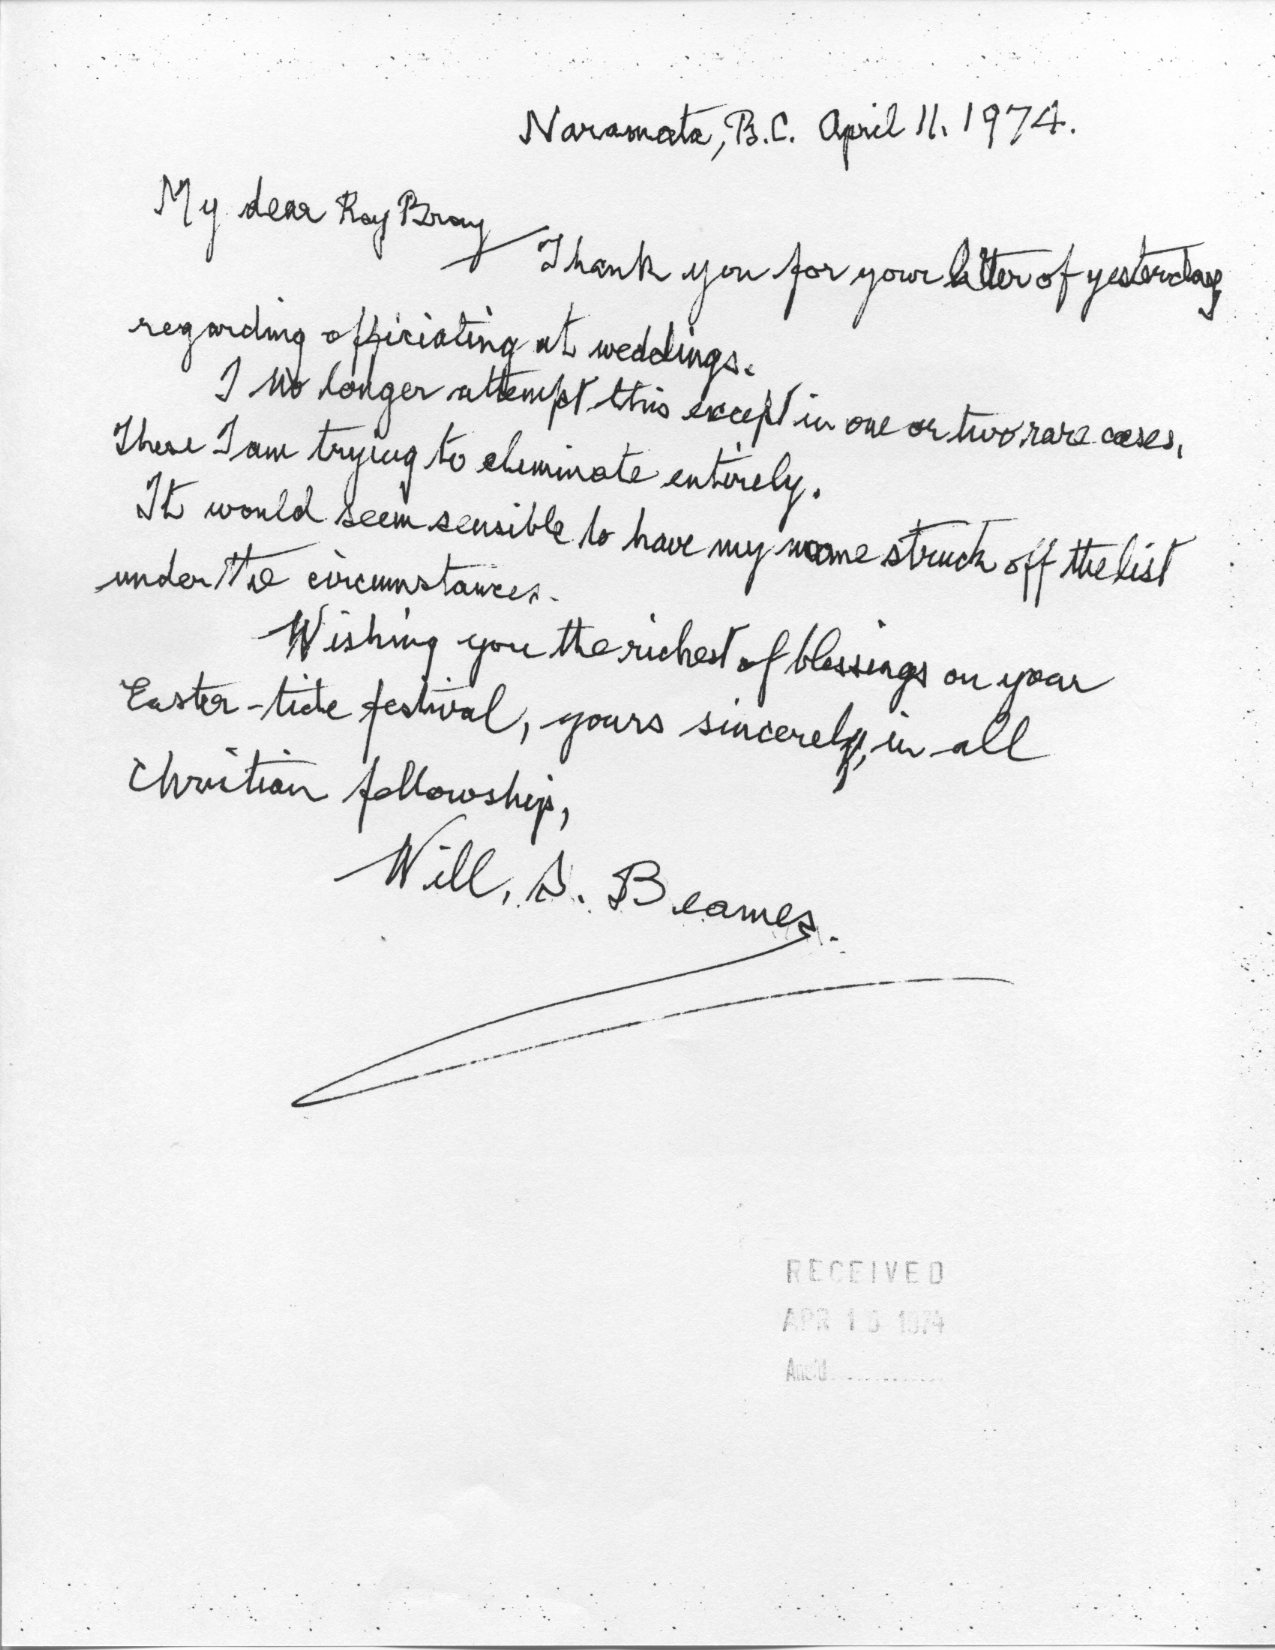 Naramata, B.C. April 11. 1974.
My dear Roy Bray
Thank you for your letter of yesterday,
regarding officiating at weddings.
I no longer attempt this except in one or two rare cases.
These I am trying to eliminate entirely.
It would seem sensible to have my name struck off the list
under the circumstances.
Wishing you the richest of blessings on your
Easter-tide festival, yours sincerely, in all
Christian fellowship,
Will. S. Beames.
RECEIVED
APR 1 1974
Ans'd